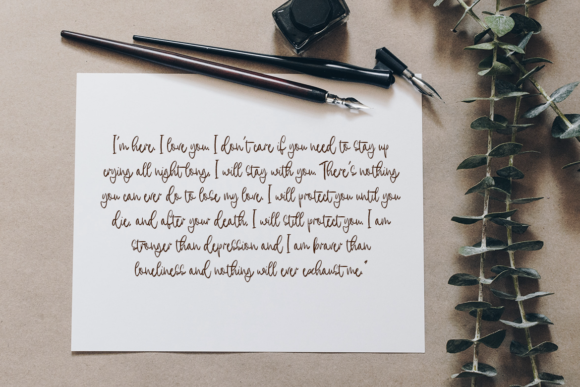 I'm here. I love you. I don't care if you need to stay up
crying all night long, I will stay with you. There's nothing
you can ever do to lose my love. I will protect you until you
die, and after your death, I will still protect you. I am
stronger than depression and I am braver than
loneliness and nothing will ever exhaust me."